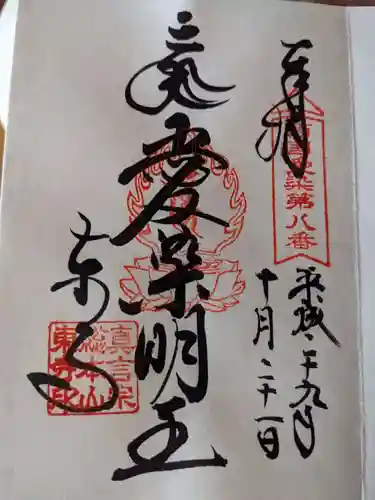 奉拝
西国愛染第八番
平成二十九年
十月二十一日
愛染明王
東寺
真言宗
総本山
東寺印